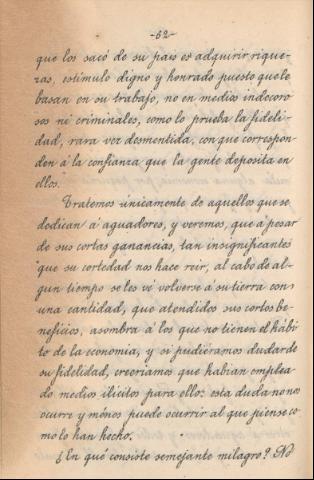 -62-
que los sacó de su pais es adquirir rique-
zas, estímulo digno y honrado puesto que le
basan en su trabajo, no en medios indecoro
sos ni criminales, como lo prueba la fideli-
dad, rara vez desmentida, con que correspon-
den á la confianza que la gente deposita en
ellos.
Tratemos únicamente de aquellos que se
dedican á aguadores, y veremos, que á pesar
de sus cortas ganancias, tan insignificantes
que su cortedad nos hace reir, al cabo de al-
gun tiempo se les vé volverse á su tierra con
una cantidad, que atendidos sus cortos be-
neficios, asombra á los que no tienen el hábi
to de la economía, y si pudiéramos dudar de
su fidelidad, creeriamos que habian emplea-
do medios ilícitos para ello: esta duda no nos
ocurre y ménos puede ocurrir al que piense co
mo lo han hecho.
¿En qué consiste semejante milagro? No